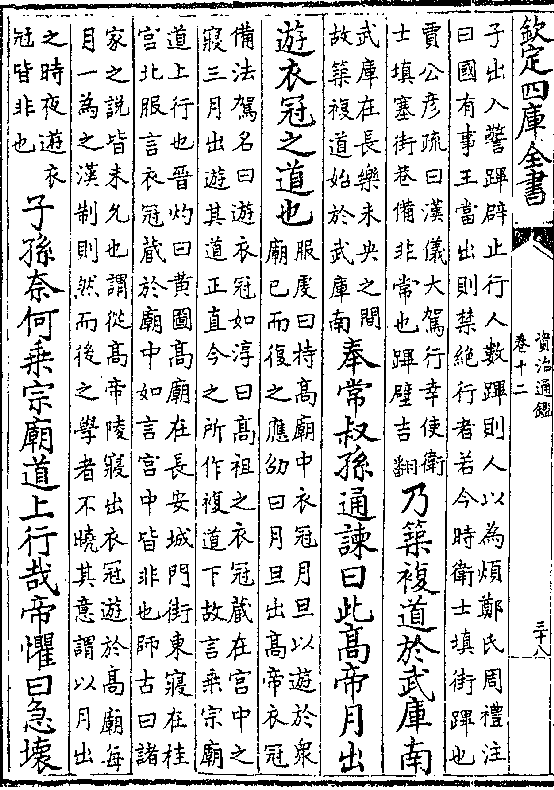 欽定四庫全書
資治通鑑
卷十二
三十八
子出入警蹕辟止行人數蹕則人以為煩鄭氏周禮注
曰國有事王當出則禁絶行者若今時衛士填街蹕也
賈公彦疏曰漢儀大駕行幸使衛
士填塞街巷備非常也蹕壁吉翻
乃築複道於武庫南
武庫在長樂未央之間
故築複道始於武庫南
奉常叔孫通諫曰此髙帝月出
遊衣冠之道也
服虔曰持髙廟中衣冠月旦以遊於衆
廟已而復之應劭曰月旦出髙帝衣冠
備法駕名曰遊衣冠如淳曰髙祖之衣冠蔵在宫中之
寢三月出遊其道正直今之所作複道下故言乗宗廟
道上行也晋灼曰黄圖髙廟在長安城門街東寢在桂
宫北服言衣冠蔵於廟中如言宫中皆非也師古曰諸
家之說皆未允也謂從髙帝陵寢出衣冠遊於髙廟每
月一為之漢制則然而後之學者不曉其意謂以月出
之時夜遊衣
冠皆非也
子孫奈何乗宗廟道上行哉帝懼曰急壞